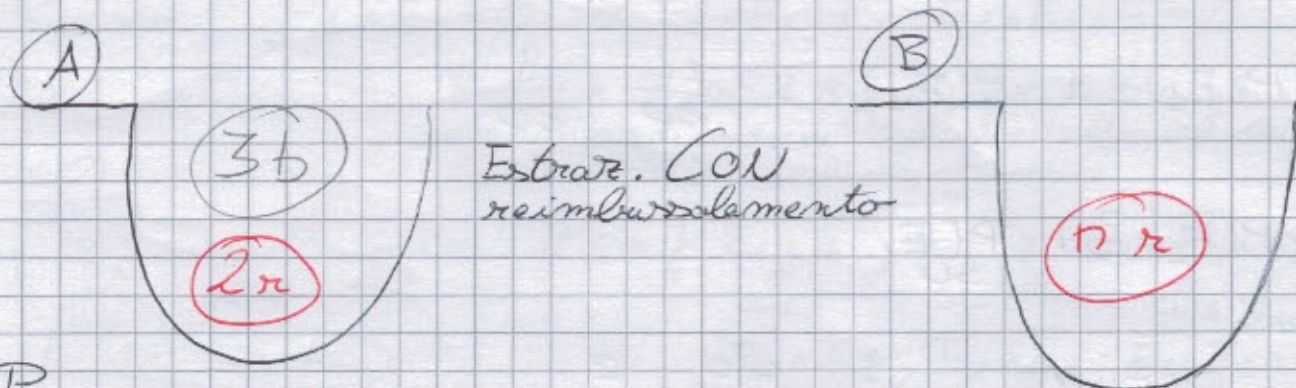 A
B
3b
Estraz. CON
reimbussolamento
2r
n r
P